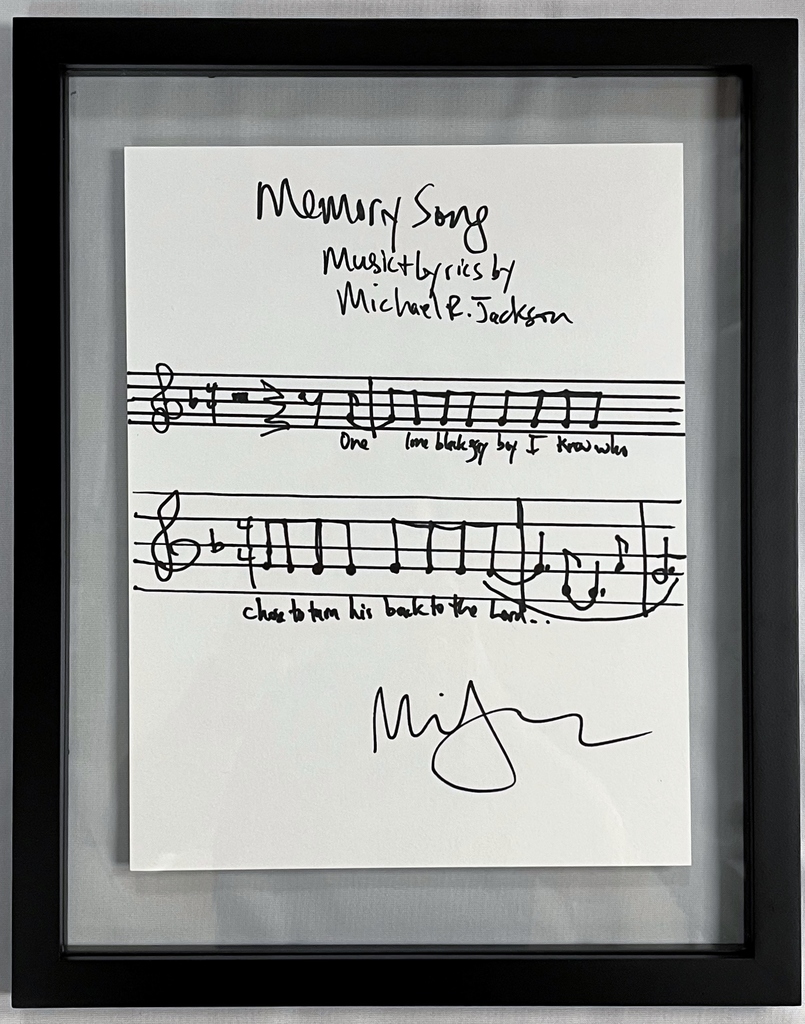 Memory Song
Music + Lyrics by
Michael R. Jackson
4 4
One lone black gay boy I know who
4 4
chose to turn his back to the Lord...